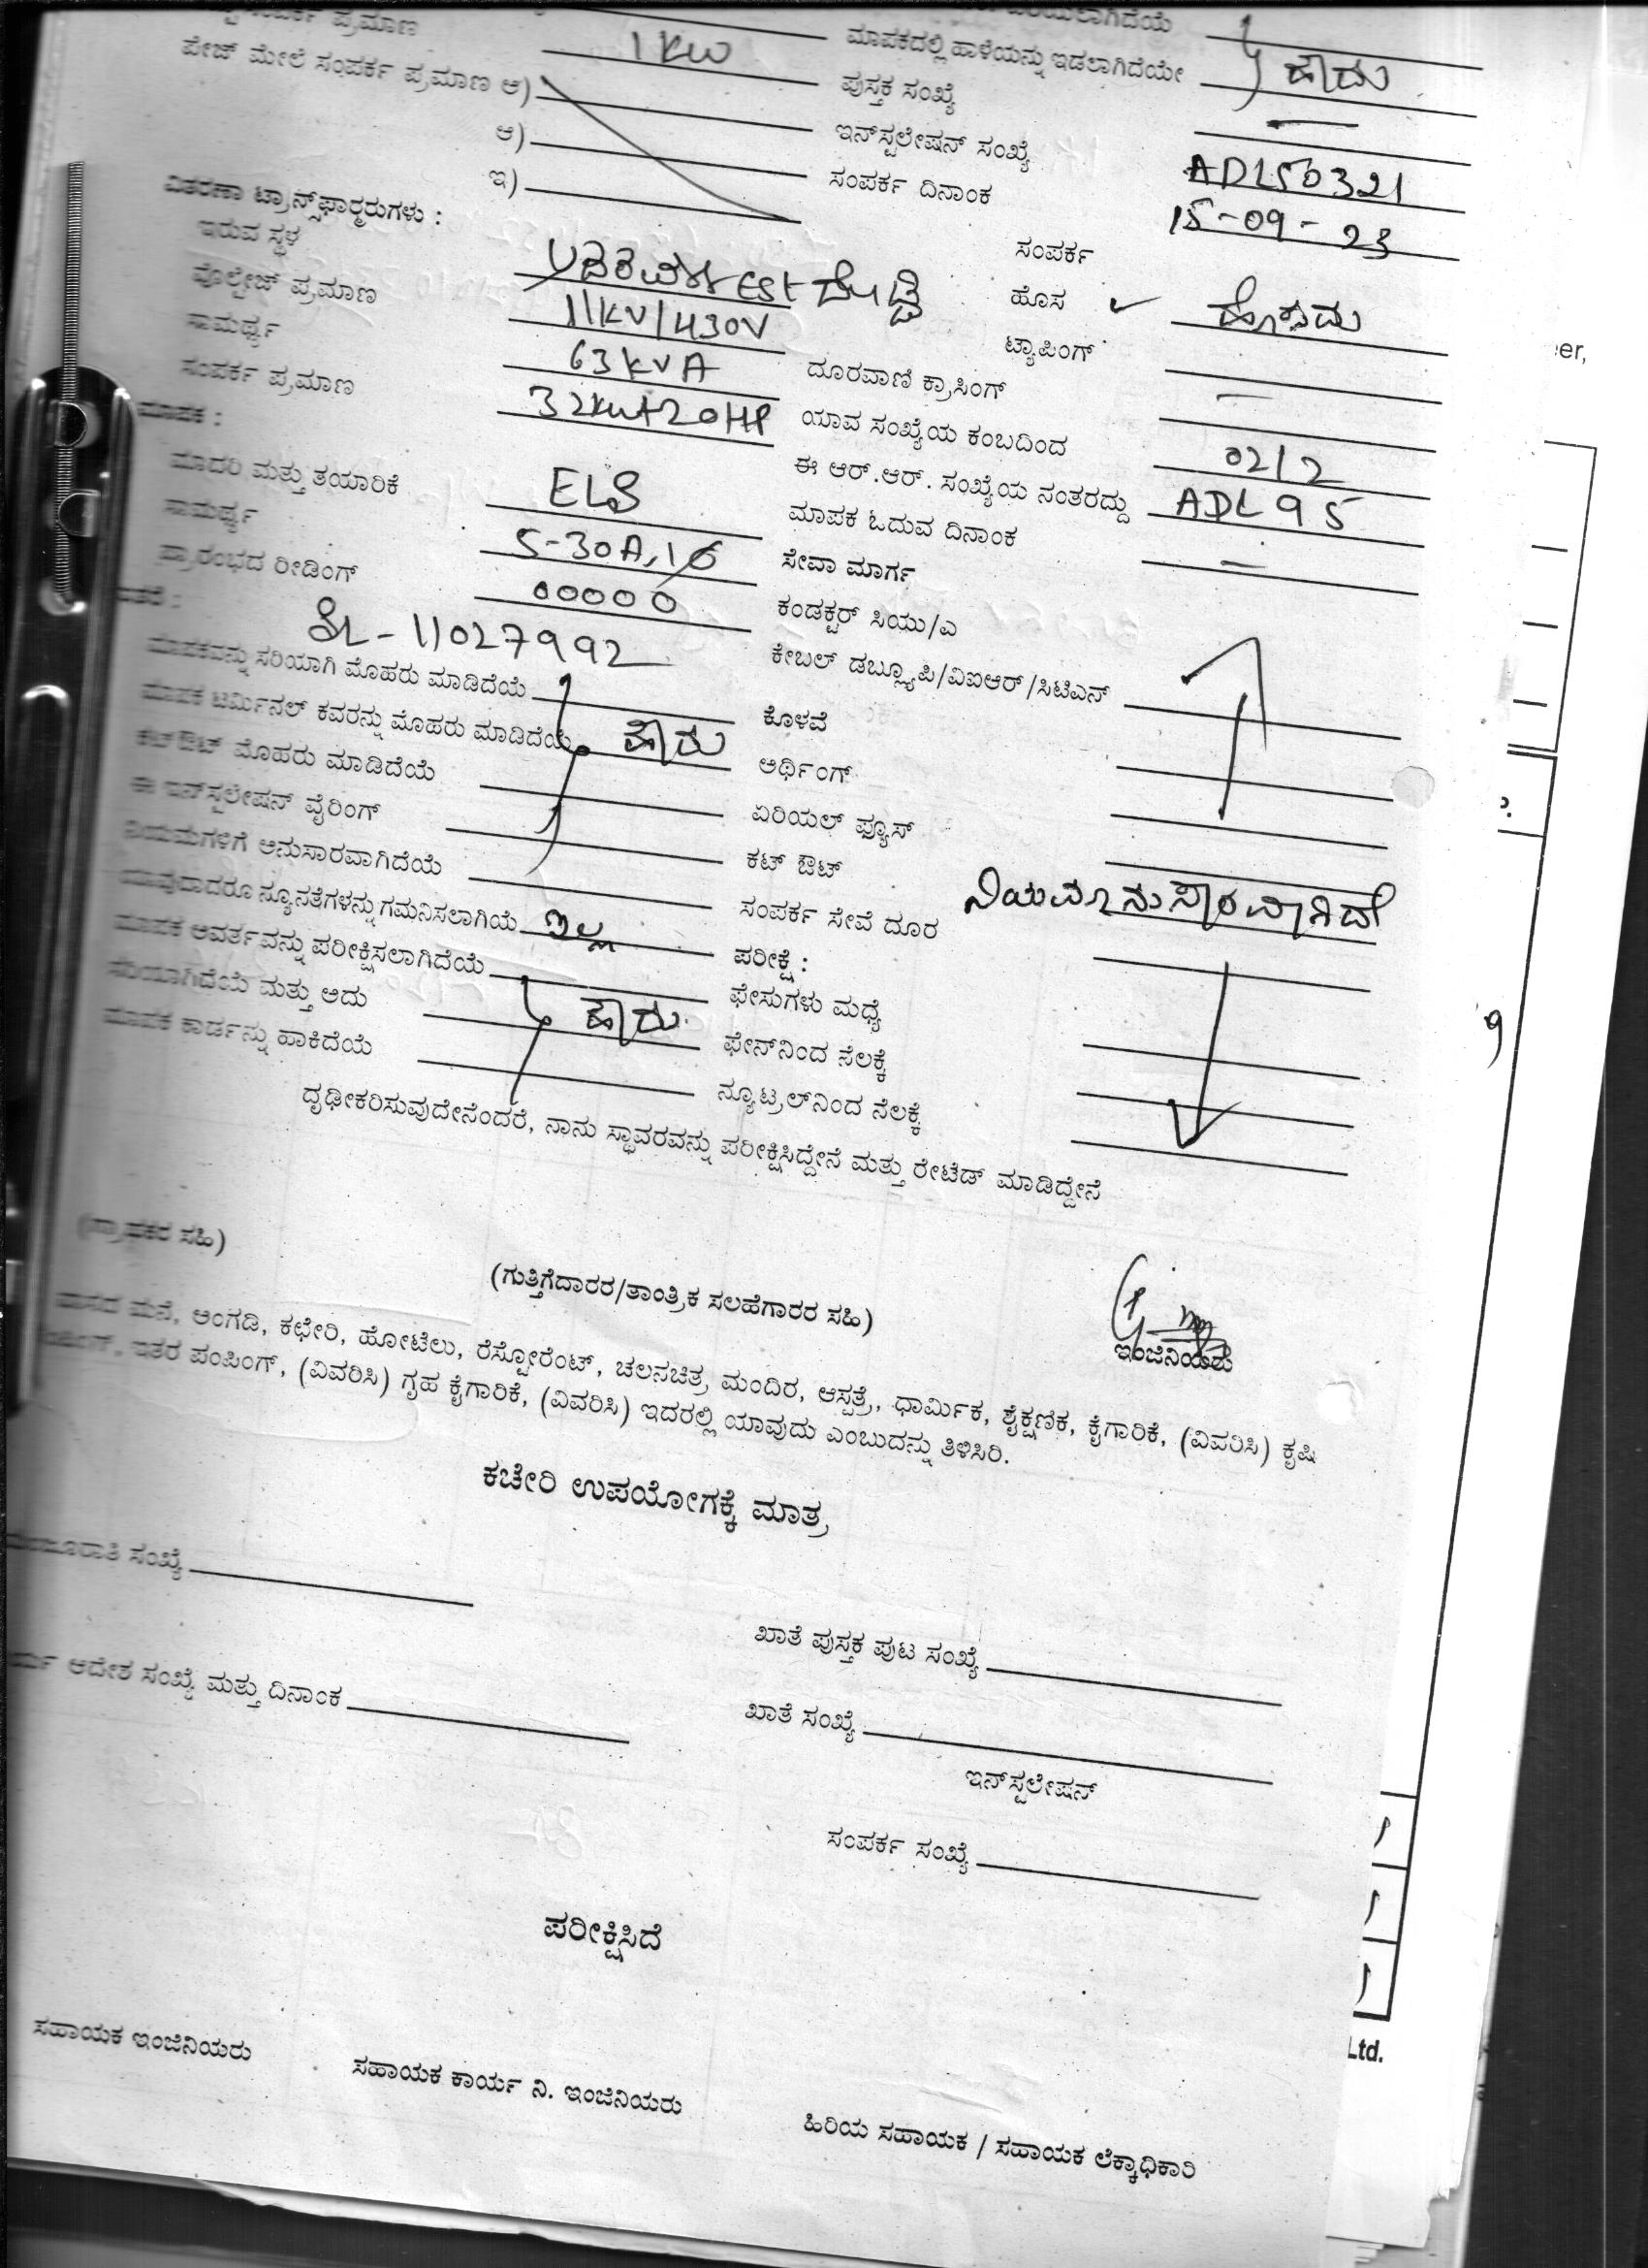 ಸಂಪರ್ಕ ಪ್ರಮಾಣ 1 KW
ಮಾಪಕದಲ್ಲಿ ಹಾಳೆಯನ್ನು ಇಡಲಾಗಿದೆಯೇ ಹೌದು
ಪೇಜ್ ಮೇಲೆ ಸಂಪರ್ಕ ಪ್ರಮಾಣ ಅ)
ಪುಸ್ತಕ ಸಂಖ್ಯೆ —
ಆ)
ಇನ್‌ಸ್ಟಲೇಷನ್ ಸಂಖ್ಯೆ ADL50321
ಇ)
ಸಂಪರ್ಕ ದಿನಾಂಕ 15-09-23
ವಿತರಣಾ ಟ್ರಾನ್ಸ್‌ಫಾರ್ಮರುಗಳು :
ಸಂಪರ್ಕ
ಇರುವ ಸ್ಥಳ
ಹೊಸ ✓ ಹೊಸದು
ವೊಲ್ಟೇಜ್ ಪ್ರಮಾಣ 11KV/430V
ಟ್ಯಾಪಿಂಗ್
ಸಾಮರ್ಥ್ಯ 63KVA
ದೂರವಾಣಿ ಕ್ರಾಸಿಂಗ್ —
ಸಂಪರ್ಕ ಪ್ರಮಾಣ 32KW+20HP
ಯಾವ ಸಂಖ್ಯೆಯ ಕಂಬದಿಂದ 02/2
ಮಾಪಕ :
ಈ ಆರ್.ಆರ್. ಸಂಖ್ಯೆಯ ನಂತರದ್ದು ADL95
ಮಾದರಿ ಮತ್ತು ತಯಾರಿಕೆ
ಮಾಪಕ ಓದುವ ದಿನಾಂಕ —
ಸಾಮರ್ಥ್ಯ 5-30A,
ಸೇವಾ ಮಾರ್ಗ
ಪ್ರಾರಂಭದ ರೀಡಿಂಗ್ 00000
ಕಂಡಕ್ಟರ್ ಸಿಯು/ಎ
ಇತರೆ : SL-11027992
ಕೇಬಲ್ ಡಬ್ಲ್ಯೂಪಿ/ವಿಐಆರ್/ಸಿಟಿಎನ್
ಮಾಪಕವನ್ನು ಸರಿಯಾಗಿ ಮೊಹರು ಮಾಡಿದೆಯೆ
ಕೊಳವೆ
ಮಾಪಕ ಟರ್ಮಿನಲ್ ಕವರನ್ನು ಮೊಹರು ಮಾಡಿದೆಯೆ ಹೌದು
ಅರ್ಥಿಂಗ್
ಕಟ್‌ಔಟ್ ಮೊಹರು ಮಾಡಿದೆಯೆ
ಏರಿಯಲ್ ಫ್ಯೂಸ್
ಈ ಇನ್‌ಸ್ಟಲೇಷನ್ ವೈರಿಂಗ್
ಕಟ್ ಔಟ್
ನಿಯಮಗಳಿಗೆ ಅನುಸಾರವಾಗಿದೆಯೆ
ಸಂಪರ್ಕ ಸೇವೆ ದೂರ ನಿಯಮಾನುಸಾರವಾಗಿದೆ
ಯಾವುದಾದರೂ ನ್ಯೂನತೆಗಳನ್ನು ಗಮನಿಸಲಾಗಿಯೆ ಇಲ್ಲ
ಪರೀಕ್ಷೆ :
ಮಾಪಕ ಆವರ್ತವನ್ನು ಪರೀಕ್ಷಿಸಲಾಗಿದೆಯೆ
ಫೇಸುಗಳು ಮಧ್ಯೆ
ಸರಿಯಾಗಿದೆಯೆ ಮತ್ತು ಅದು ಹೌದು
ಫೇಸ್‌ನಿಂದ ನೆಲಕ್ಕೆ
ಮಾಪಕ ಕಾರ್ಡನ್ನು ಹಾಕಿದೆಯೆ
ನ್ಯೂಟ್ರಲ್‌ನಿಂದ ನೆಲಕ್ಕೆ
ದೃಢೀಕರಿಸುವುದೇನೆಂದರೆ, ನಾನು ಸ್ಥಾವರವನ್ನು ಪರೀಕ್ಷಿಸಿದ್ದೇನೆ ಮತ್ತು ರೇಟೆಡ್ ಮಾಡಿದ್ದೇನೆ
(ಗ್ರಾಹಕರ ಸಹಿ)
(ಗುತ್ತಿಗೆದಾರರ/ತಾಂತ್ರಿಕ ಸಲಹೆಗಾರರ ಸಹಿ)
ಇಂಜಿನಿಯರು
ವಾಸದ ಮನೆ, ಅಂಗಡಿ, ಕಛೇರಿ, ಹೋಟೆಲು, ರೆಸ್ಟೋರೆಂಟ್, ಚಲನಚಿತ್ರ ಮಂದಿರ, ಆಸ್ಪತ್ರೆ, ಧಾರ್ಮಿಕ, ಶೈಕ್ಷಣಿಕ, ಕೈಗಾರಿಕೆ, (ವಿವರಿಸಿ) ಕೃಷಿ
ಇತರ ಪಂಪಿಂಗ್, (ವಿವರಿಸಿ) ಗೃಹ ಕೈಗಾರಿಕೆ, (ವಿವರಿಸಿ) ಇದರಲ್ಲಿ ಯಾವುದು ಎಂಬುದನ್ನು ತಿಳಿಸಿರಿ.
ಕಚೇರಿ ಉಪಯೋಗಕ್ಕೆ ಮಾತ್ರ
ಸಂಖ್ಯೆ
ಖಾತೆ ಪುಸ್ತಕ ಪುಟ ಸಂಖ್ಯೆ
ಆದೇಶ ಸಂಖ್ಯೆ ಮತ್ತು ದಿನಾಂಕ
ಖಾತೆ ಸಂಖ್ಯೆ
ಇನ್‌ಸ್ಟಲೇಷನ್
ಸಂಪರ್ಕ ಸಂಖ್ಯೆ
ಪರೀಕ್ಷಿಸಿದೆ
ಸಹಾಯಕ ಇಂಜಿನಿಯರು
ಸಹಾಯಕ ಕಾರ್ಯ ನಿ. ಇಂಜಿನಿಯರು
ಹಿರಿಯ ಸಹಾಯಕ / ಸಹಾಯಕ ಲೆಕ್ಕಾಧಿಕಾರಿ
Ltd.